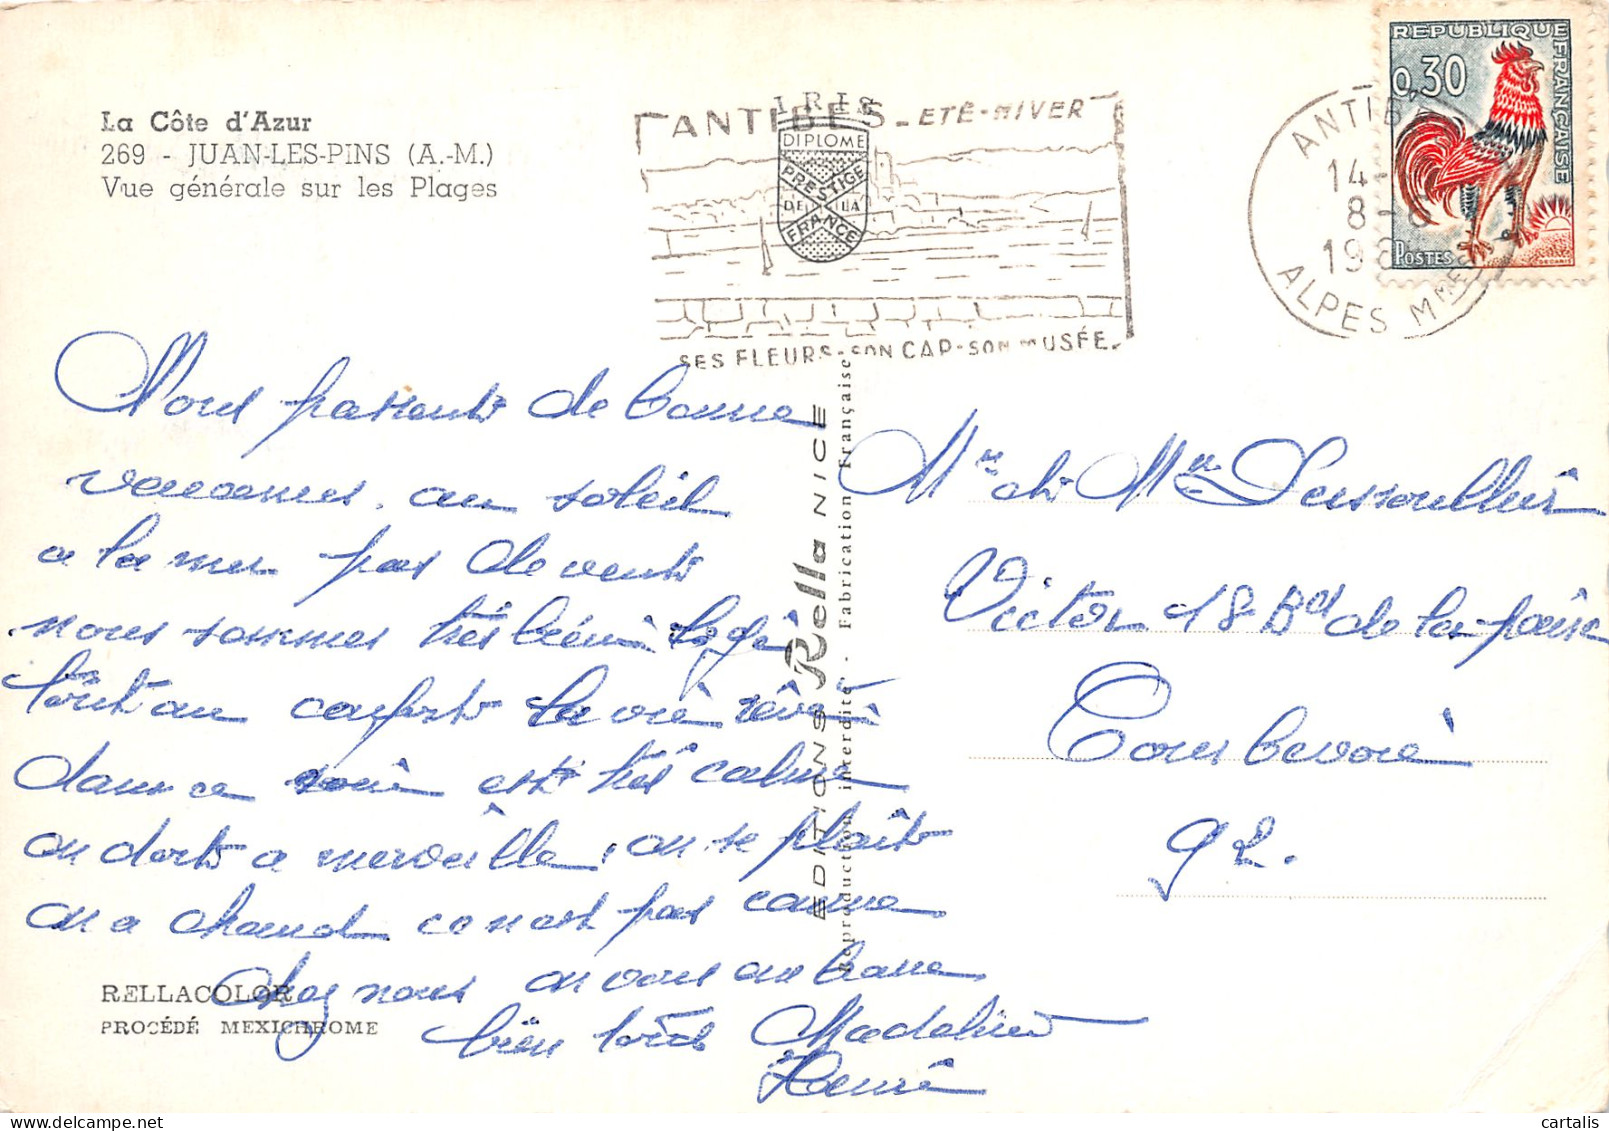 La Côte d'Azur
269 - JUAN-LES-PINS (A.-M.)
Vue générale sur les Plages
IRIS
DIPLOME
PRESTIGE
DE LA
FRANCE
ANTIBES - ETÉ-HIVER
SES FLEURS-SON CAP-SON MUSÉE
ANTIBES
14-
8-6
196
ALPES MMES
REPUBLIQUE FRANÇAISE
0,30
POSTES
DECARIS
Nous passents de bonne
vacances, au soleil
a la mer pas de vents
nous sommes très bien logé
tout au conforts la vie rêvé
dans ce coin est très calme
on dorts a merveille, on se plaîts
on a chaud ce n'est pas comme
chez nous on vous embrasse
bien tous Madeleine
Henri
EDITIONS Rella NICE
Reproduction interdite - Fabrication Française
Mr et Mme
Victor 18 Bd de la paix
Courbevoie
92.
RELLACOLOR
PROCÉDÉ MEXICHROME
cartalis